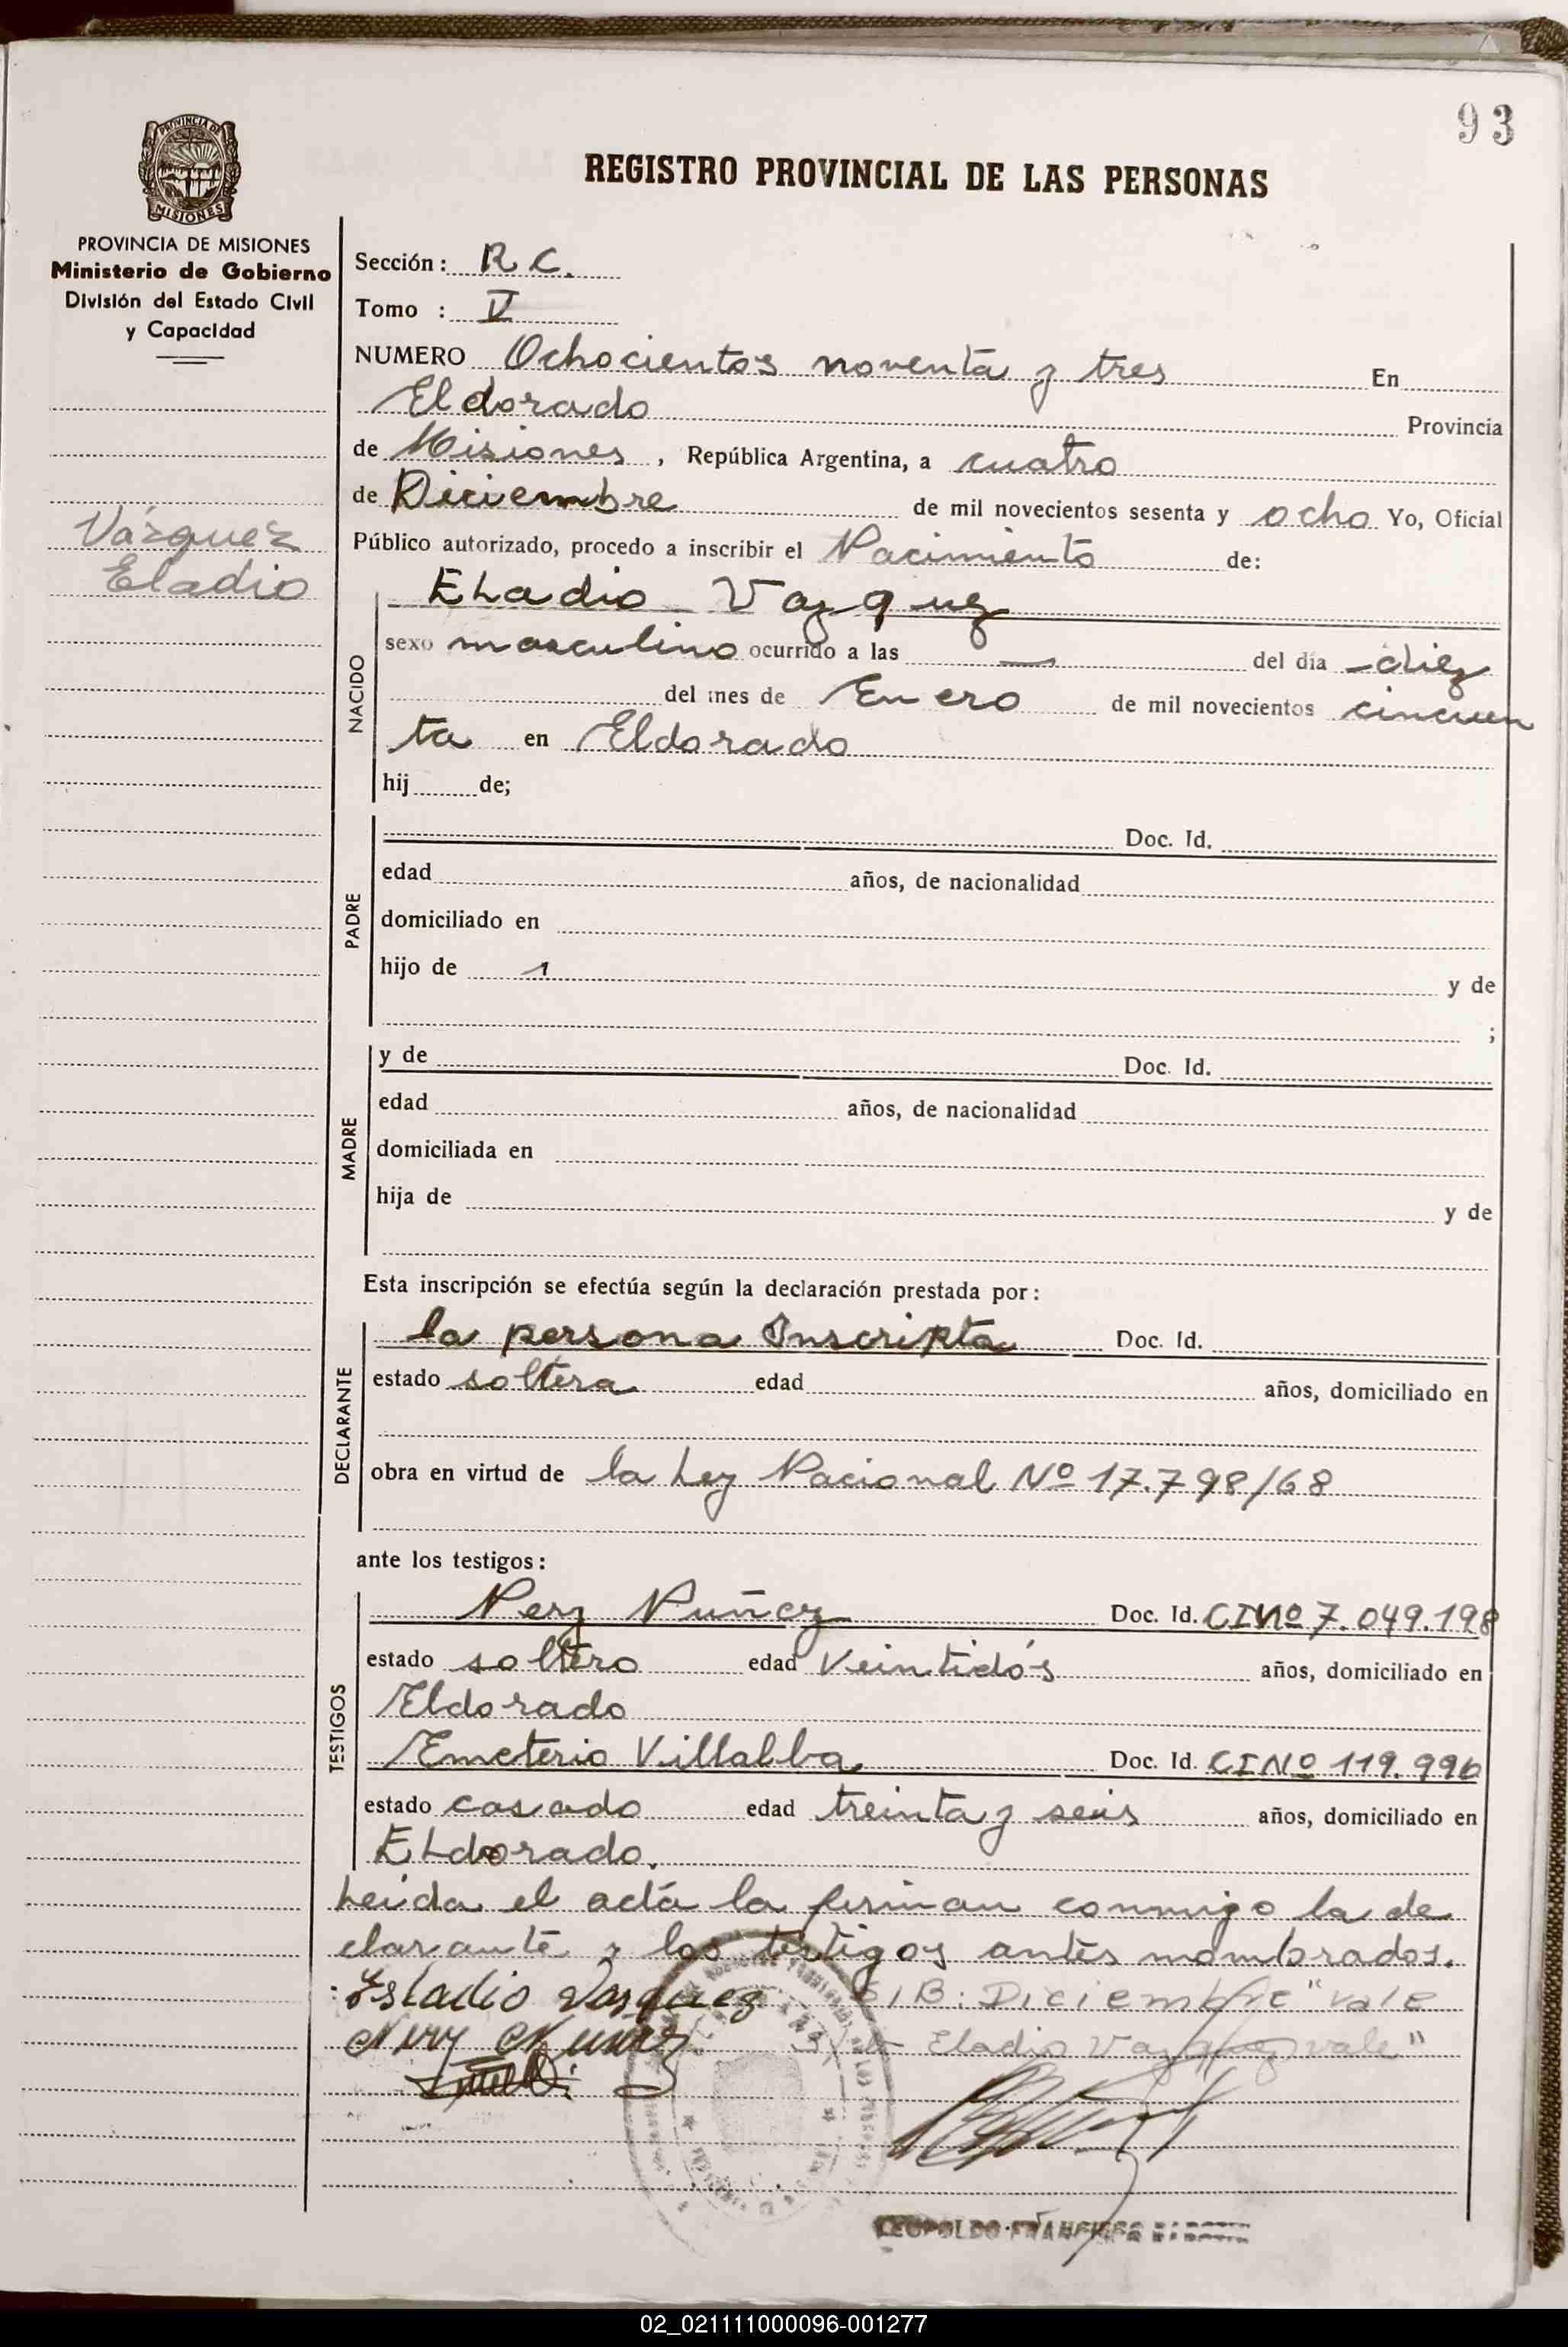 93
PROVINCIA DE
MISIONES
REGISTRO PROVINCIAL DE LAS PERSONAS
PROVINCIA DE MISIONES
Ministerio de Gobierno
División del Estado Civil
y Capacidad
Vázquez
Eladio
Sección: R C.
Tomo : V
NUMERO Ochocientos noventa y tres En
Eldorado Provincia
de Misiones, República Argentina, a cuatro
de Diciembre de mil novecientos sesenta y ocho Yo, Oficial
Público autorizado, procedo a inscribir el Nacimiento de:
NACIDO
Eladio Vazquez
sexo masculino ocurrido a las — del día - diez
del mes de Enero de mil novecientos cincuen
ta en Eldorado
hij de;
PADRE
Doc. Id.
edad años, de nacionalidad
domiciliado en
hijo de 1 y de
;
MADRE
y de Doc. Id.
edad años, de nacionalidad
domiciliada en
hija de y de
Esta inscripción se efectúa según la declaración prestada por:
DECLARANTE
la persona Inscripta Doc. Id.
estado soltera edad años, domiciliado en
obra en virtud de la Ley Nacional Nº 17.798/68
ante los testigos:
TESTIGOS
Nery Nuñez Doc. Id. CI Nº 7.049.198
estado soltero edad Veintidós años, domiciliado en
Eldorado
Emeterio Villalba Doc. Id. CI Nº 119.996
estado casado edad treinta y seis años, domiciliado en
Eldorado.
Leida el acta la firman conmigo la de
clarante y los testigos antes nombrados.
Esladio Vasquez S/B: Diciembre "vale
Nery Nuñez Eladio Vazquez vale"
LEOPOLDO FRANCISCO
02_021111000096-001277